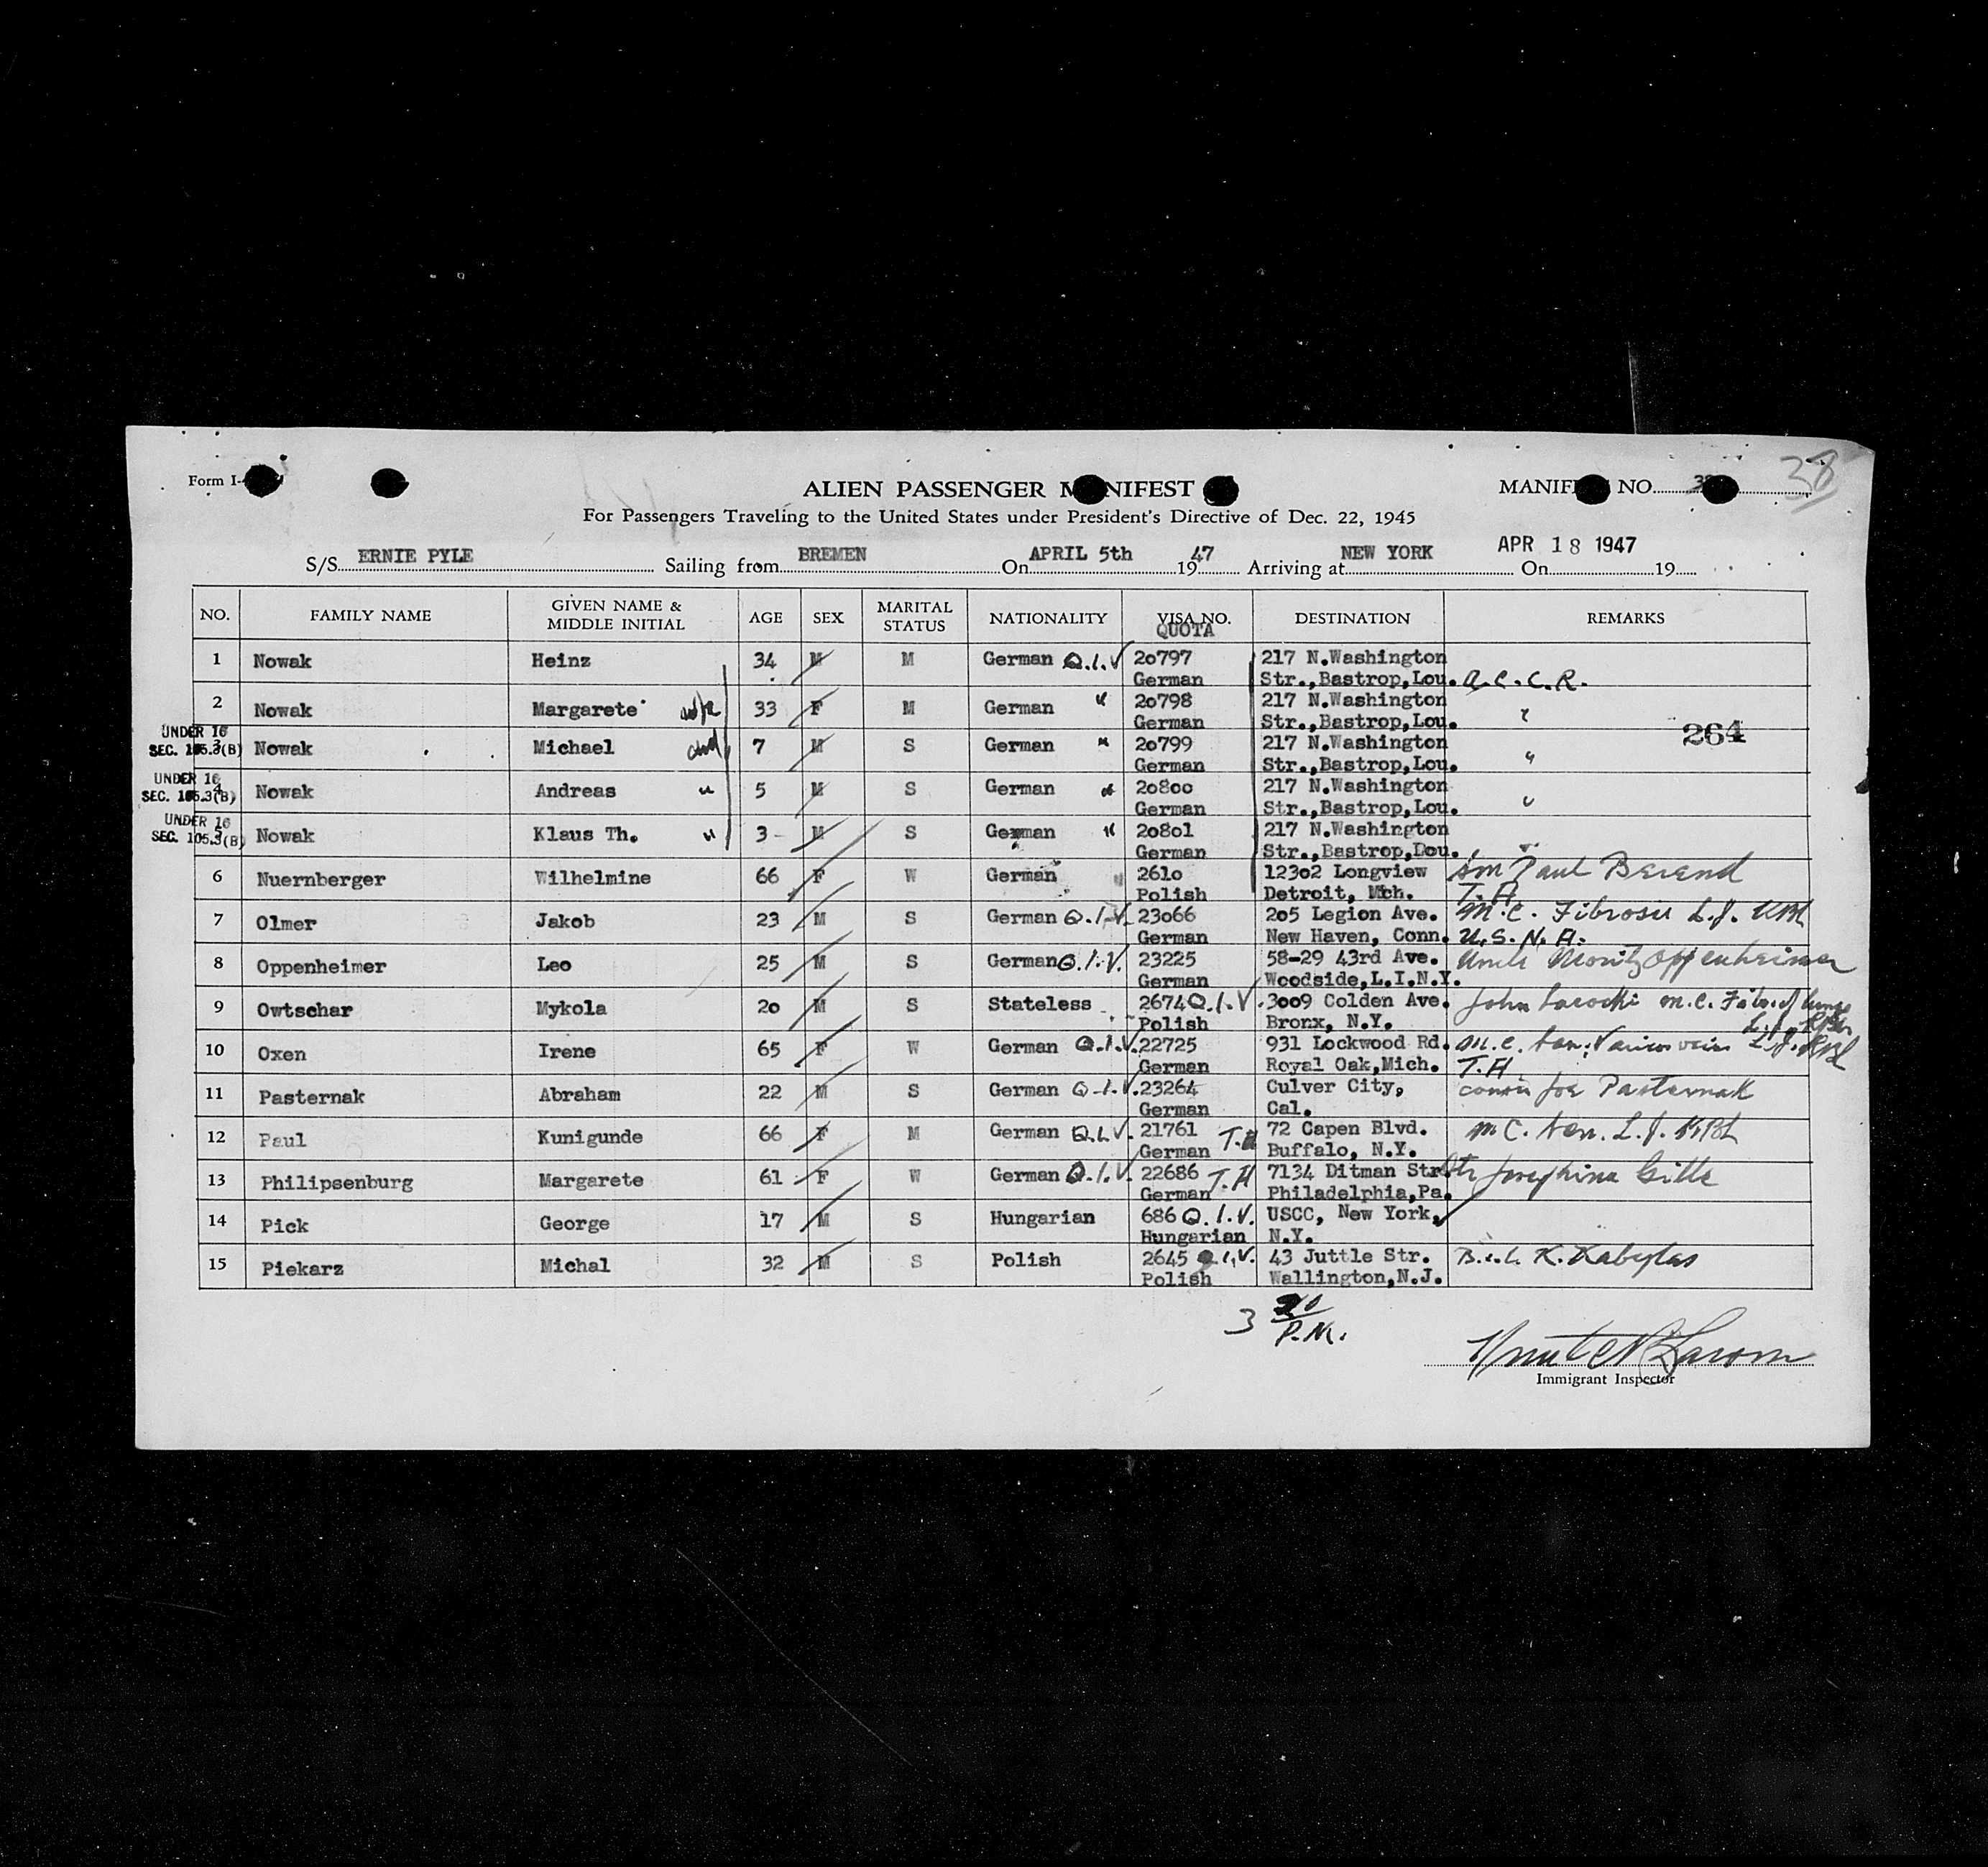 38
Form I-
ALIEN PASSENGER MANIFEST
MANIFEST NO.
For Passengers Traveling to the United States under President's Directive of Dec. 22, 1945
S/S ERNIE PYLE Sailing from BREMEN On APRIL 5th 1947 Arriving at NEW YORK On APR 18 1947 19
NO. FAMILY NAME GIVEN NAME & MIDDLE INITIAL AGE SEX MARITAL STATUS NATIONALITY VISA NO. QUOTA DESTINATION REMARKS
1 Nowak Heinz 34 M M German Q.I.V 20797 217 N.Washington
German Str.,Bastrop,Lou. A.C.C.R.
2 Nowak Margarete wife 33 F M German " 20798 217 N.Washington
German Str.,Bastrop,Lou. "
264
UNDER 16
SEC. 105.3(B) 3 Nowak Michael 7 M S German " 20799 217 N.Washington
German Str.,Bastrop,Lou. "
UNDER 16
SEC. 105.3(B) 4 Nowak Andreas " 5 M S German " 20800 217 N.Washington
German Str.,Bastrop,Lou. "
UNDER 16
SEC. 105.3(B) 5 Nowak Klaus Th. " 3 M S German " 20801 217 N.Washington
German Str.,Bastrop,Dou. "
6 Nuernberger Wilhelmine 66 F W German 2610 12302 Longview Paul Berend
Polish Detroit, Mch. T.H
7 Olmer Jakob 23 M S German Q.I.V. 23066 205 Legion Ave. M.C. Fibrosis L.J.
German New Haven, Conn. U.S.N.A.
8 Oppenheimer Leo 25 M S German Q.I.V. 23225 58-29 43rd Ave. Uncle Moritz Oppenheimer
German Woodside,L.I.N.Y.
9 Owtschar Mykola 20 M S Stateless 2674 Q.I.V. 3009 Colden Ave. John M.C.
Polish Bronx, N.Y.
10 Oxen Irene 65 F W German Q.I.V. 22725 931 Lockwood Rd. M.C.
German Royal Oak,Mich. T.H
11 Pasternak Abraham 22 M S German Q.I.V. 23264 Culver City, cousin Joe Pasternak
German Cal.
12 Paul Kunigunde 66 F M German Q.I.V. 21761 T.H 72 Capen Blvd. M C. L.J.
German Buffalo, N.Y.
13 Philipsenburg Margarete 61 F W German Q.I.V. 22686 T.H 7134 Ditman Str. Josephina
German Philadelphia,Pa.
14 Pick George 17 M S Hungarian 686 Q.I.V. USCC, New York,
Hungarian N.Y.
15 Piekarz Michal 32 M S Polish 2645 Q.I.V. 43 Juttle Str. B.i.L. K.
Polish Wallington,N.J.
3 P.M.
Immigrant Inspector